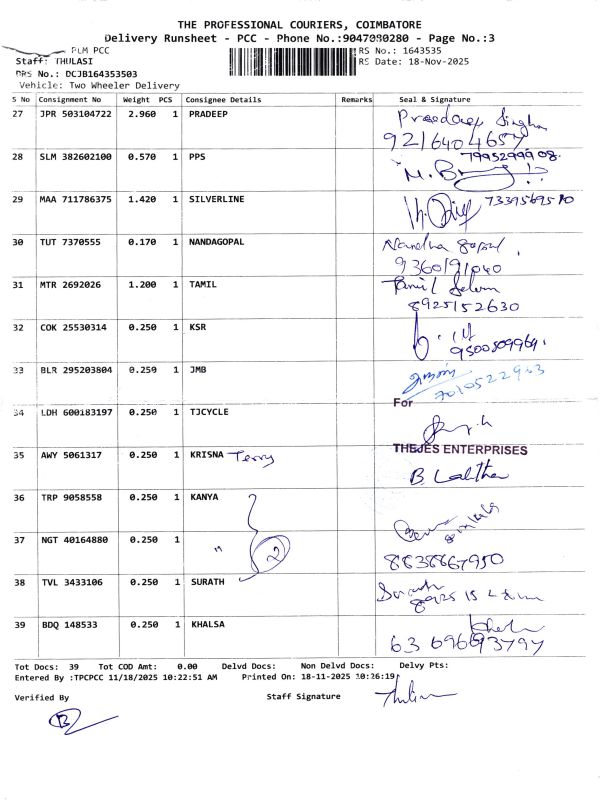 THE PROFESSIONAL COURIERS, COIMBATORE
Delivery Runsheet - PCC - Phone No.:9047080280 - Page No.:3
PLM PCC
RS No.: 1643535
Staff: THULASI
RS Date: 18-Nov-2025
DRS No.: DCJB164353503
Vehicle: Two Wheeler Delivery
S No Consignment No Weight PCS Consignee Details Remarks Seal & Signature
27 JPR 503104722 2.960 1 PRADEEP Pradeep Singh
9216404657
28 SLM 382602100 0.570 1 PPS 7995299908
29 MAA 711786375 1.420 1 SILVERLINE 7339569510
30 TUT 7370555 0.170 1 NANDAGOPAL Nandha gopal
9360191040
31 MTR 2692026 1.200 1 TAMIL Tamil Selvan
8925152630
32 COK 25530314 0.250 1 KSR
9500509969
33 BLR 295203804 0.250 1 JMB
7010522963
For
34 LDH 600183197 0.250 1 TJCYCLE
THEJES ENTERPRISES
35 AWY 5061317 0.250 1 KRISNA Terry B. Lalitha
36 TRP 9058558 0.250 1 KANYA
37 NGT 40164880 0.250 1 " 2
8838867950
38 TVL 3433106 0.250 1 SURATH Surath
39 BDQ 148533 0.250 1 KHALSA
63 69693797
Tot Docs: 39 Tot COD Amt: 0.00 Delvd Docs: Non Delvd Docs: Delvy Pts:
Entered By :TPCPCC 11/18/2025 10:22:51 AM Printed On: 18-11-2025 10:26:19
Verified By Staff Signature